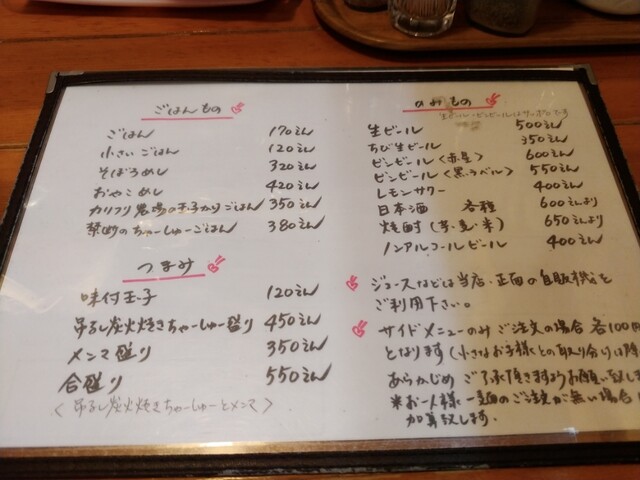 ごはんもの
ごはん 170えん
小さいごはん 120えん
そぼろめし 320えん
おやこめし 420えん
カリフリ農場の玉子かけごはん 350えん
禁断のちゃーしゅーごはん 380えん
つまみ
味付玉子 120えん
吊るし炭火焼きちゃーしゅー盛り 450えん
メンマ盛り 350えん
合盛り 550えん
〈吊るし炭火焼きちゃーしゅーとメンマ〉
のみもの
生ビール・ビンビールはサッポロです
生ビール 500えん
ちび生ビール 350えん
ビンビール〈赤星〉 600えん
ビンビール〈黒ラベル〉 550えん
レモンサワー 400えん
日本酒 各種 600えんより
焼酎(芋・麦・米) 650えんより
ノンアルコールビール 400えん
ジュースなどは当店・正面の自販機を
ご利用下さい。
サイドメニューのみご注文の場合 各100円
となります(小さなお子様との取り分けは除
あらかじめご了承頂きますようお願い致しま
※お一人様一麺のご注文が無い場合
加算致します.